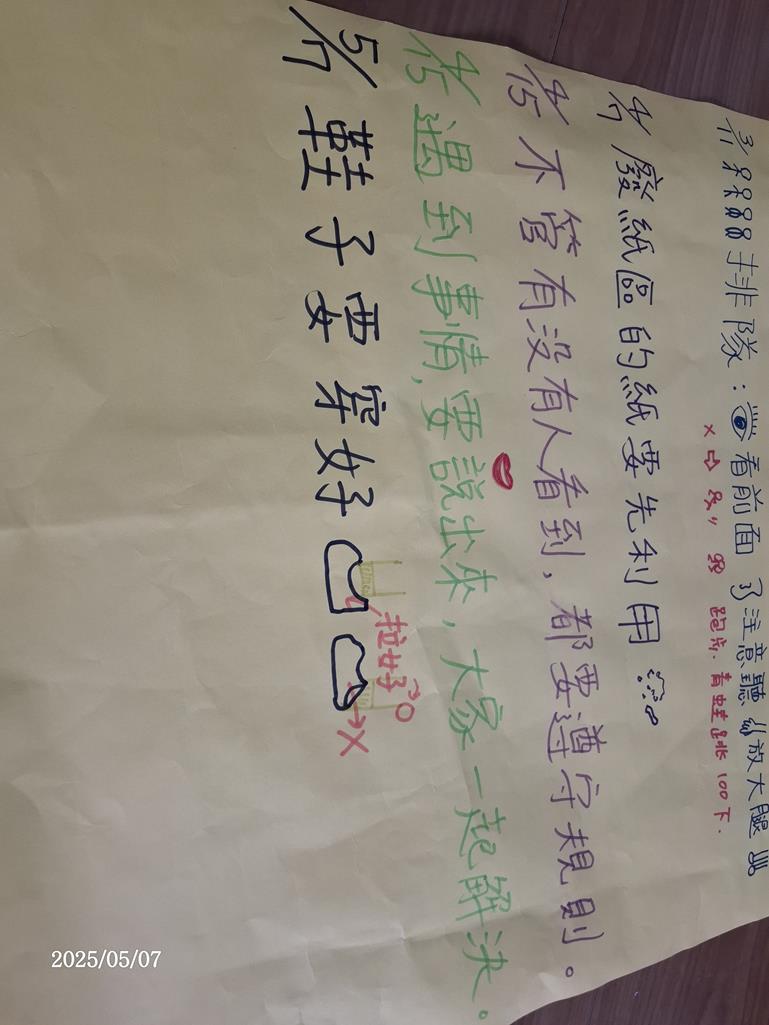 3/11 排隊：看前面 注意聽 放大腿
X⇨ 跑步．青蛙跳100下．
4/7 廢紙區的紙要先利用
4/15 不管有沒有人看到，都要遵守規則。
4/15 遇到事情，要說出來，大家一起解決。
5/7 鞋子要穿好
拉好→O
→X
2025/05/07